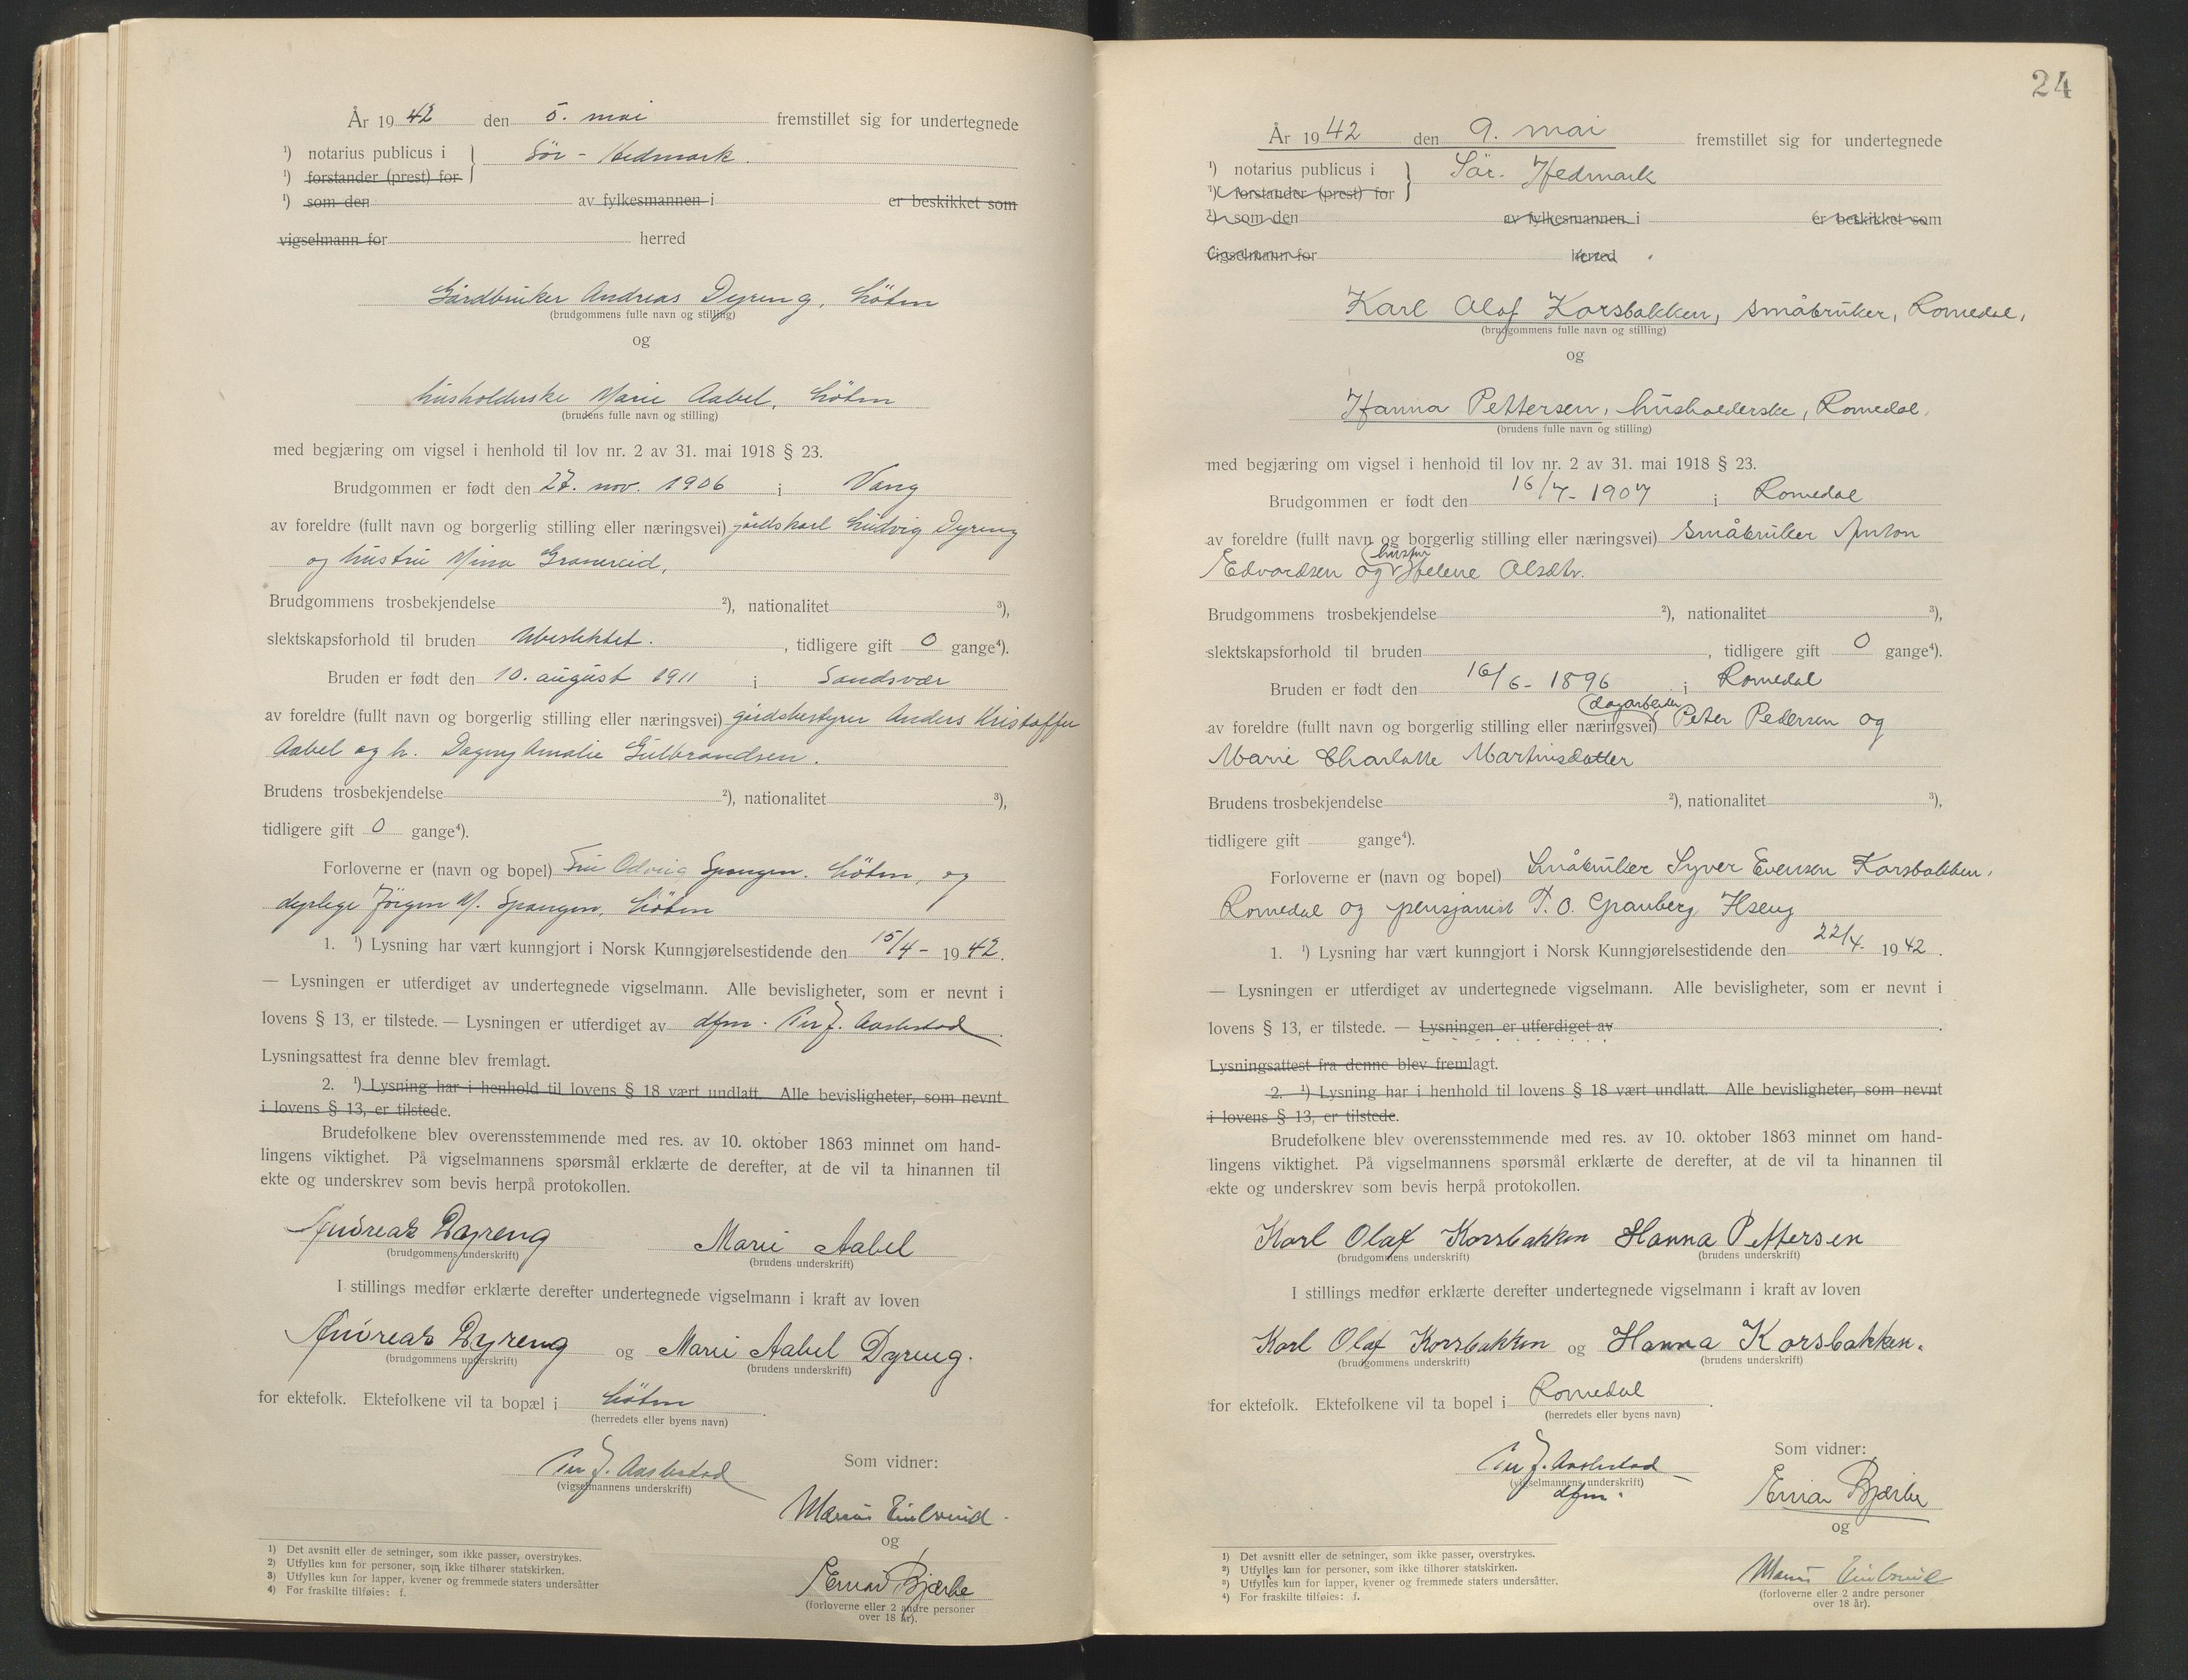 År 1942 den 5. mai fremstillet sig for undertegnede
¹) notarius publicus i } Sör-Hedmark.
¹) forstander (prest) for
¹) som den av fylkesmannen i er beskikket som
vigselmann for herred
Gårdbruker Andreas Dyreng, Löten
(brudgommens fulle navn og stilling)
og
husholderske Marie Aabel, Löten
(brudens fulle navn og stilling)
med begjæring om vigsel i henhold til lov nr. 2 av 31. mai 1918 § 23.
Brudgommen er født den 27. nov. 1906 i Vang
av foreldre (fullt navn og borgerlig stilling eller næringsvei) gårdskarl Ludvig Dyreng
og hustru Mina Granereid,
Brudgommens trosbekjendelse ²), nationalitet ³),
slektskapsforhold til bruden Ubeslektet. , tidligere gift 0 gange⁴).
Bruden er født den 10. august 1911 i Sandsvær
av foreldre (fullt navn og borgerlig stilling eller næringsvei) gårdsbestyrer Anders Kristoffer
Aabel og h. Dagny Amalie Gulbrandsen.
Brudens trosbekjendelse ²), nationalitet ³),
tidligere gift 0 gange⁴).
Forloverne er (navn og bopel) Fru Odveig Spangen. Löten, og
dyrlege Jörgen M. Spangen, Löten
1. ¹) Lysning har vært kunngjort i Norsk Kunngjørelsestidende den 15/4- 1942.
— Lysningen er utferdiget av undertegnede vigselmann. Alle bevisligheter, som er nevnt i
lovens § 13, er tilstede. — Lysningen er utferdiget av dfm. Per J. Aarlestad.
Lysningsattest fra denne blev fremlagt.
2. ¹) Lysning har i henhold til lovens § 18 vært undlatt. Alle bevisligheter, som nevnt
i lovens § 13, er tilstede.
Brudefolkene blev overensstemmende med res. av 10. oktober 1863 minnet om hand-
lingens viktighet. På vigselmannens spørsmål erklærte de derefter, at de vil ta hinannen til
ekte og underskrev som bevis herpå protokollen.
Andreas Dyreng Marie Aabel
(brudgommens underskrift) (brudens underskrift)
I stillings medfør erklærte derefter undertegnede vigselmann i kraft av loven
Andreas Dyreng og Marie Aabel Dyreng.
(brudgommens underskrift) (brudens underskrift)
for ektefolk. Ektefolkene vil ta bopæl i Löten.
(herredets eller byens navn)
Per J. Aarlestad Som vidner:
(vigselmannens underskrift)
Marius
og
Einar Bjerke
(forloverne eller 2 andre personer
over 18 år).
1) Det avsnitt eller de setninger, som ikke passer, overstrykes.
2) Utfylles kun for personer, som ikke tilhører statskirken.
3) Utfylles kun for lapper, kvener og fremmede staters undersåtter
4) For fraskilte tilføies: f.
24
År 1942 den 9. mai fremstillet sig for undertegnede
¹) notarius publicus i } Sör-Hedmark
¹) forstander (prest) for
¹) som den av fylkesmannen i er beskikket som
vigselmann for herred
Karl Olaf Korsbakken, småbruker, Romedal,
(brudgommens fulle navn og stilling)
og
Hanna Pettersen, husholderske, Romedal,
(brudens fulle navn og stilling)
med begjæring om vigsel i henhold til lov nr. 2 av 31. mai 1918 § 23.
Brudgommen er født den 16/7- 1907 i Romedal
av foreldre (fullt navn og borgerlig stilling eller næringsvei) småbruker Anton
hustru
Edvardsen og Helene Olsdtr.
Brudgommens trosbekjendelse ²), nationalitet ³),
slektskapsforhold til bruden , tidligere gift 0 gange⁴).
Bruden er født den 16/6- 1896 i Romedal
dagarbeider
av foreldre (fullt navn og borgerlig stilling eller næringsvei) Peter Pedersen og
Marie Charlotte Martinsdatter
Brudens trosbekjendelse ²), nationalitet ³),
tidligere gift gange⁴).
Forloverne er (navn og bopel) Småbruker Syver Evensen Korsbakken,
Romedal og pensjonist P. O. Granberg, Hseng
1. ¹) Lysning har vært kunngjort i Norsk Kunngjørelsestidende den 22/4- 1942.
— Lysningen er utferdiget av undertegnede vigselmann. Alle bevisligheter, som er nevnt i
lovens § 13, er tilstede. — Lysningen er utferdiget av .
Lysningsattest fra denne blev fremlagt.
2. ¹) Lysning har i henhold til lovens § 18 vært undlatt. Alle bevisligheter, som nevnt
i lovens § 13, er tilstede.
Brudefolkene blev overensstemmende med res. av 10. oktober 1863 minnet om hand-
lingens viktighet. På vigselmannens spørsmål erklærte de derefter, at de vil ta hinannen til
ekte og underskrev som bevis herpå protokollen.
Karl Olaf Korsbakken Hanna Pettersen
(brudgommens underskrift) (brudens underskrift)
I stillings medfør erklærte derefter undertegnede vigselmann i kraft av loven
Karl Olaf Korsbakken og Hanna Korsbakken.
(brudgommens underskrift) (brudens underskrift)
for ektefolk. Ektefolkene vil ta bopel i Romedal.
(herredets eller byens navn)
Per J. Aarlestad Som vidner:
(vigselmannens underskrift)
dfm.
Einar Bjerke
og
Marius
(forloverne eller 2 andre personer
over 18 år).
1) Det avsnitt eller de setninger, som ikke passer, overstrykes.
2) Utfylles kun for personer, som ikke tilhører statskirken.
3) Utfylles kun for lapper, kvener og fremmede staters undersåtter.
4) For fraskilte tilføies: f.